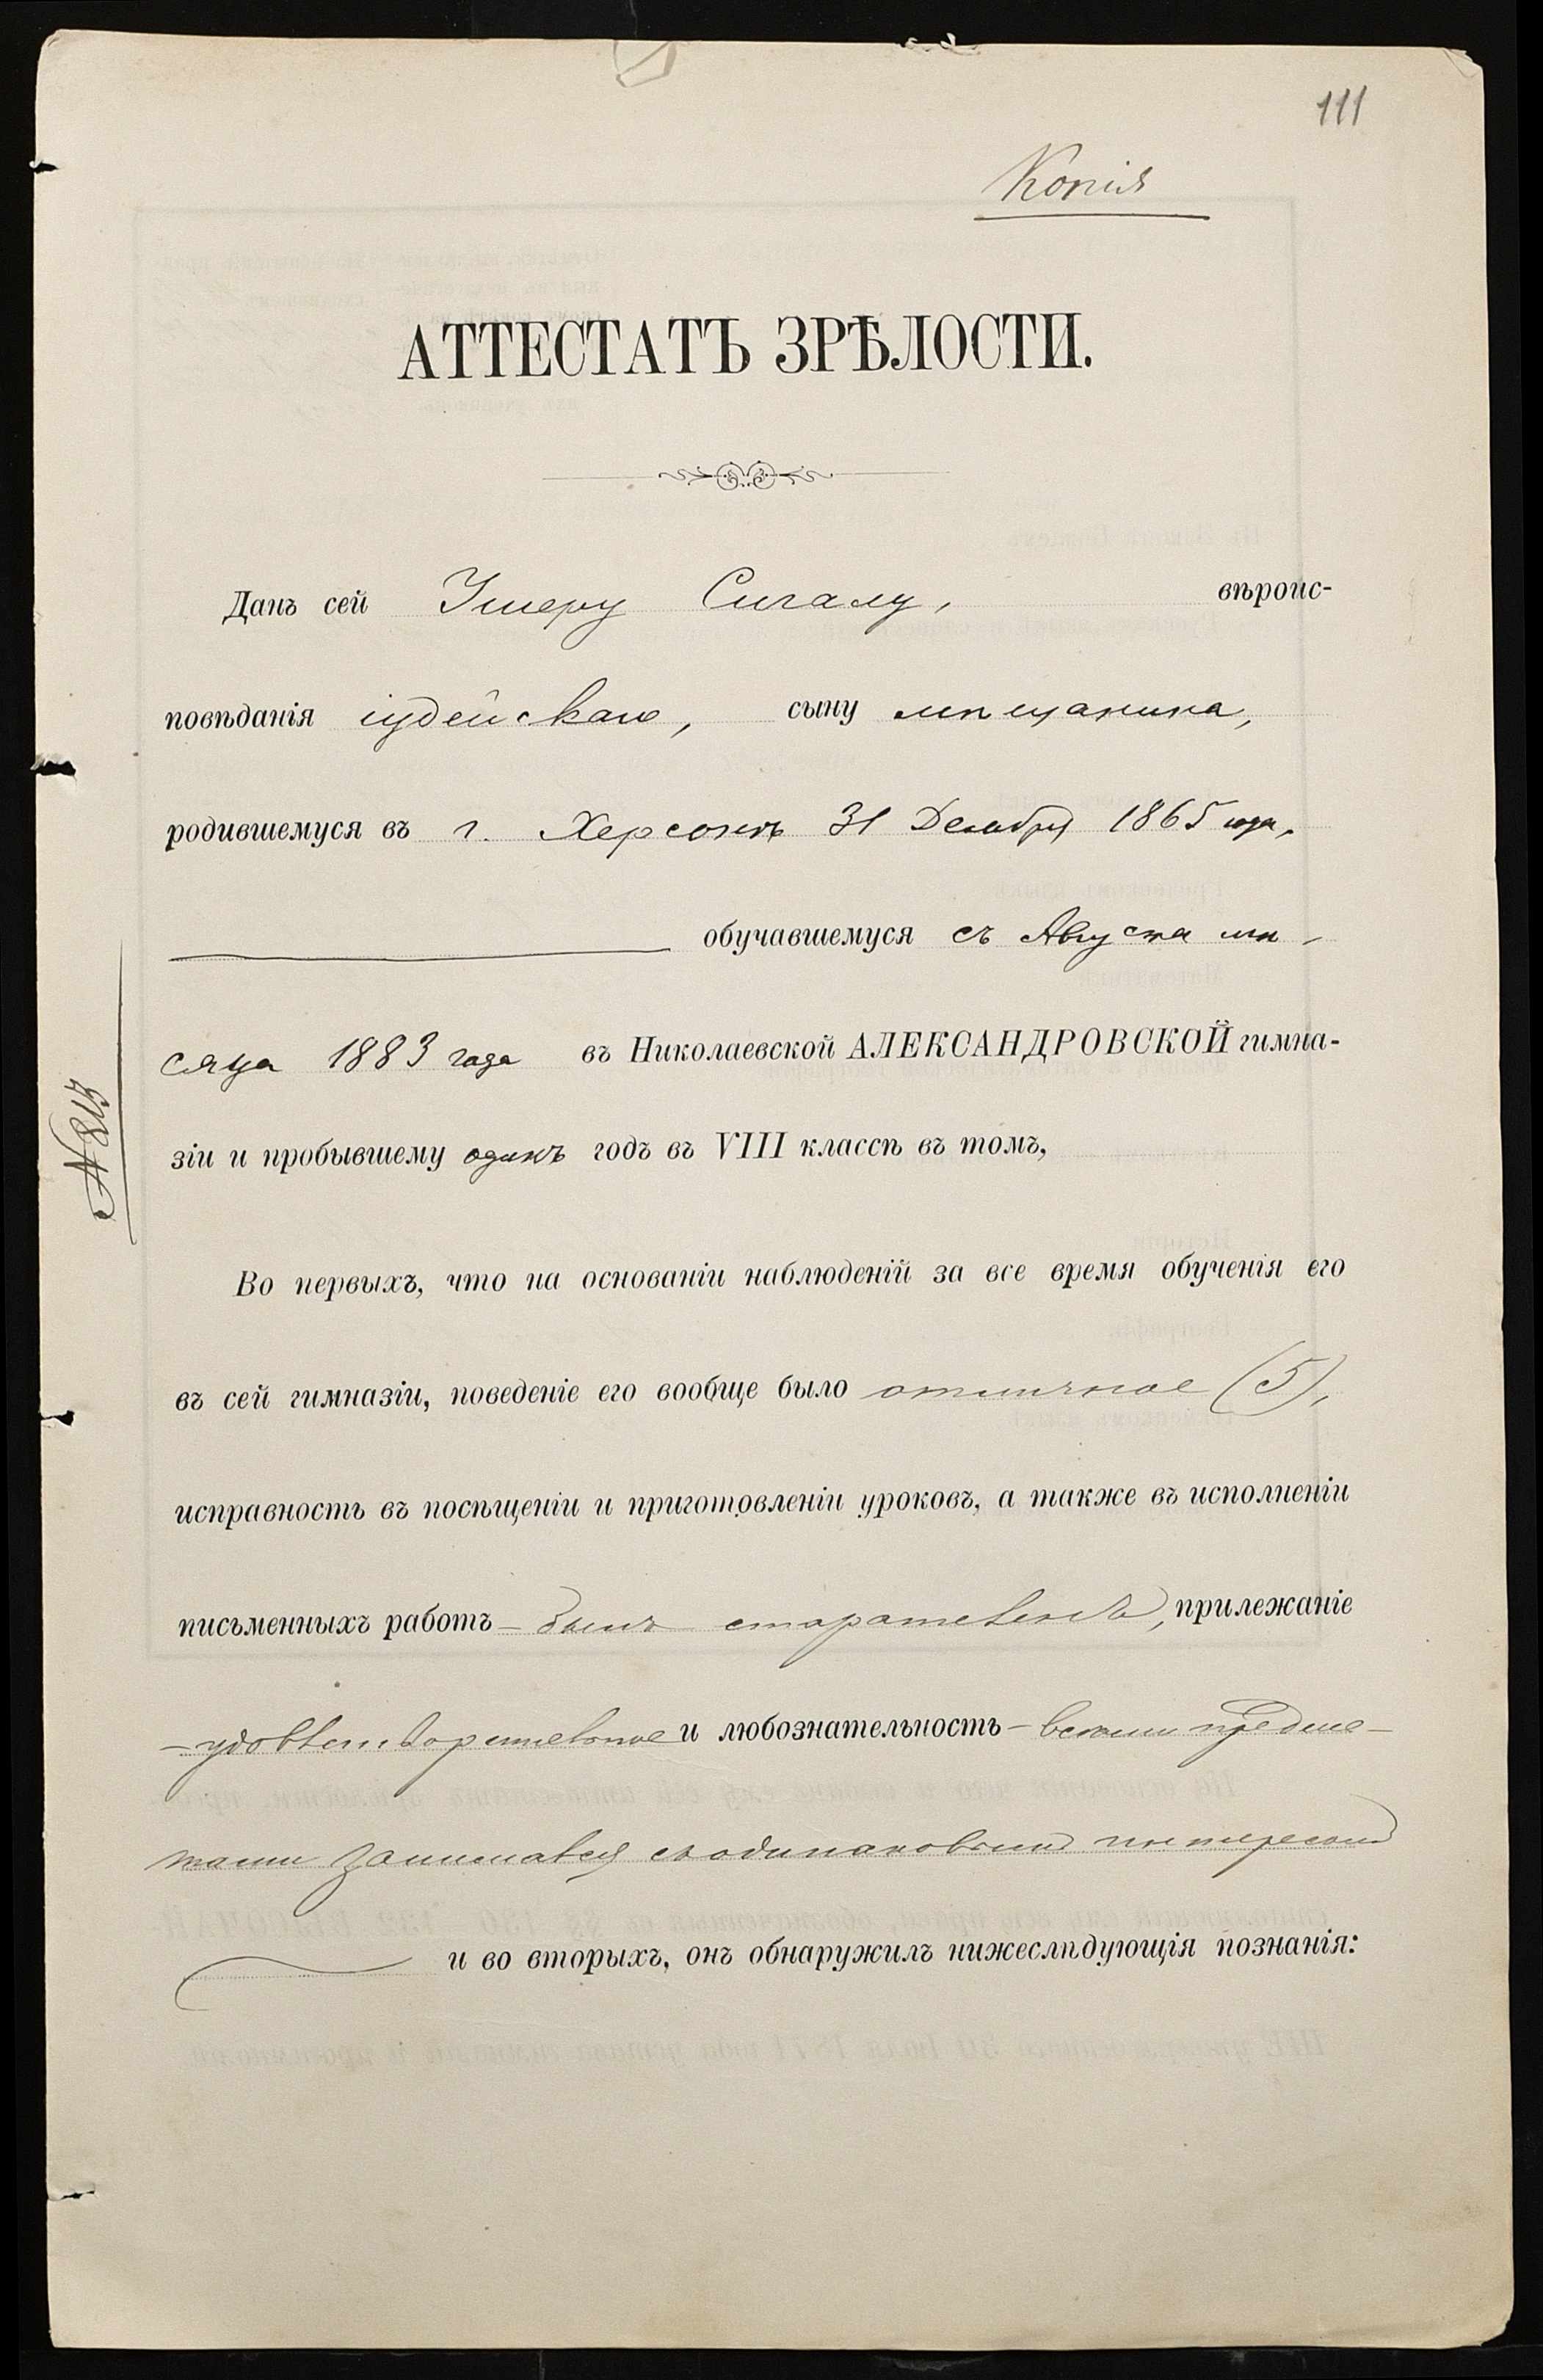 111
Копія
АТТЕСТАТЪ ЗРѢЛОСТИ.
Данъ сей Ушеру Сигалу, вѣроис-
повѣданія іудейскаго, сыну мѣщанина,
родившемуся въ г. Херсонѣ 31 Декабря 1865 года,
обучавшемуся съ Августа мѣ-
сяца 1883 года въ Николаевской АЛЕКСАНДРОВСКОЙ гимна-
зіи и пробывшему одинъ годъ въ VIII классѣ въ томъ,
№ 213
Во первыхъ, что на основаніи наблюденій за все время обученія его
въ сей гимназіи, поведеніе его вообще было отличное (5),
исправность въ посѣщеніи и приготовленіи уроковъ, а также въ исполненіи
письменныхъ работъ – былъ старателенъ, прилежаніе
– удовлетворительное и любознательность – всѣми предме-
тами занимался съ одинаковымъ интересомъ
и во вторыхъ, онъ обнаружилъ нижеслѣдующія познанія: